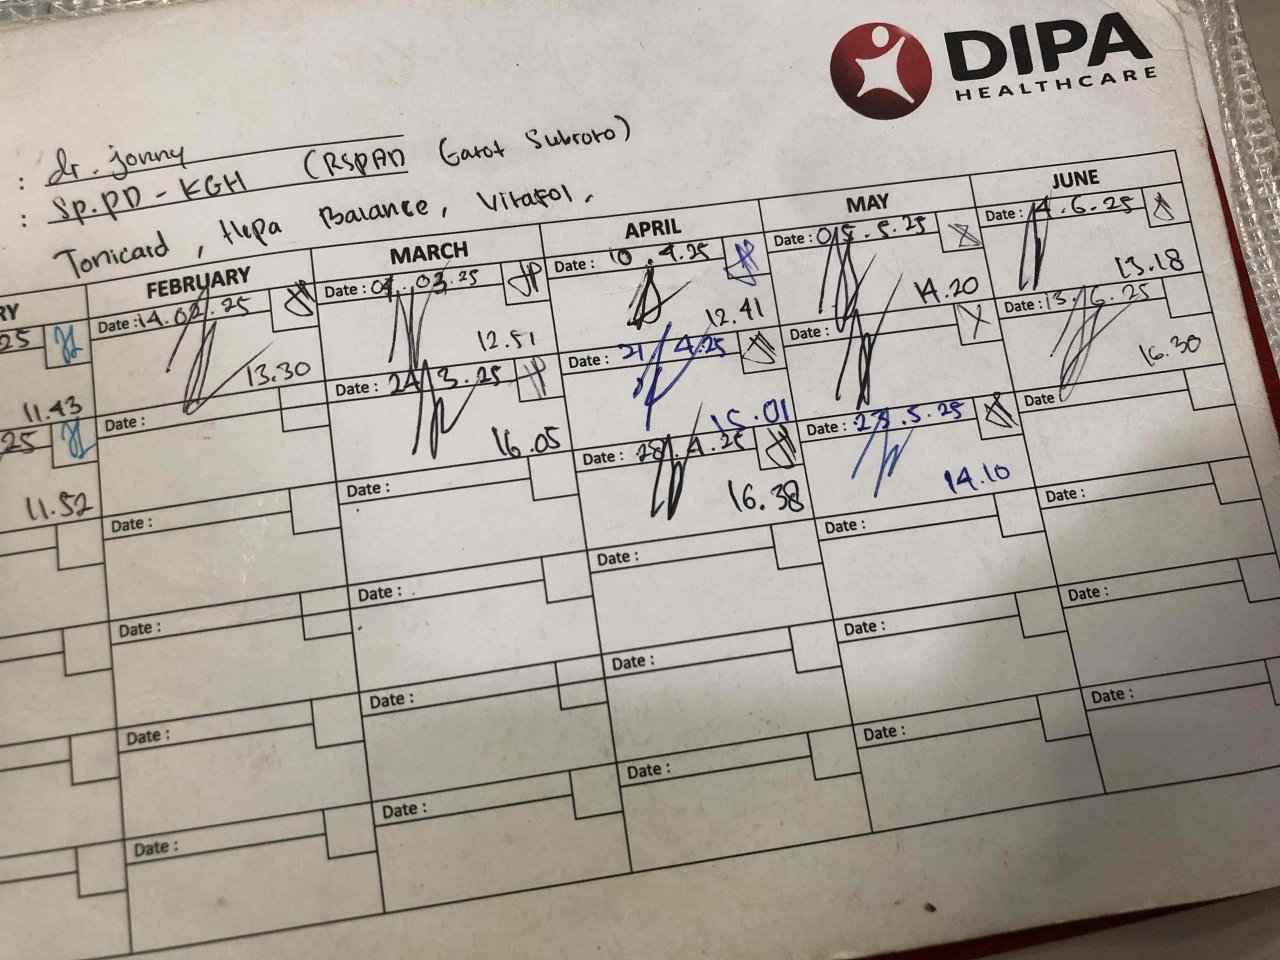 DIPA
HEALTHCARE
: dr. jonny
: Sp.PD - KGH (RSPAD Gatot Subroto)
Tonicard, Hepa Balance, Vitafol,
RY FEBRUARY MARCH APRIL MAY JUNE
25 Date : 14.02.25 Date : 03.25 Date : 10.4.25 Date : 05.5.25 Date : 4.6.25
11.43 13.30 12.51 12.41 14.20 13.18
25 Date : Date : 24.3.25 Date : 21.4.25 Date : Date : 13.6.25
11.52 16.05 15.01 16.30
Date : Date : Date : 28.4.25 Date : 23.5.25 Date :
16.38 14.10
Date : Date : Date : Date : Date :
Date : Date : Date : Date : Date :
Date : Date : Date : Date : Date :